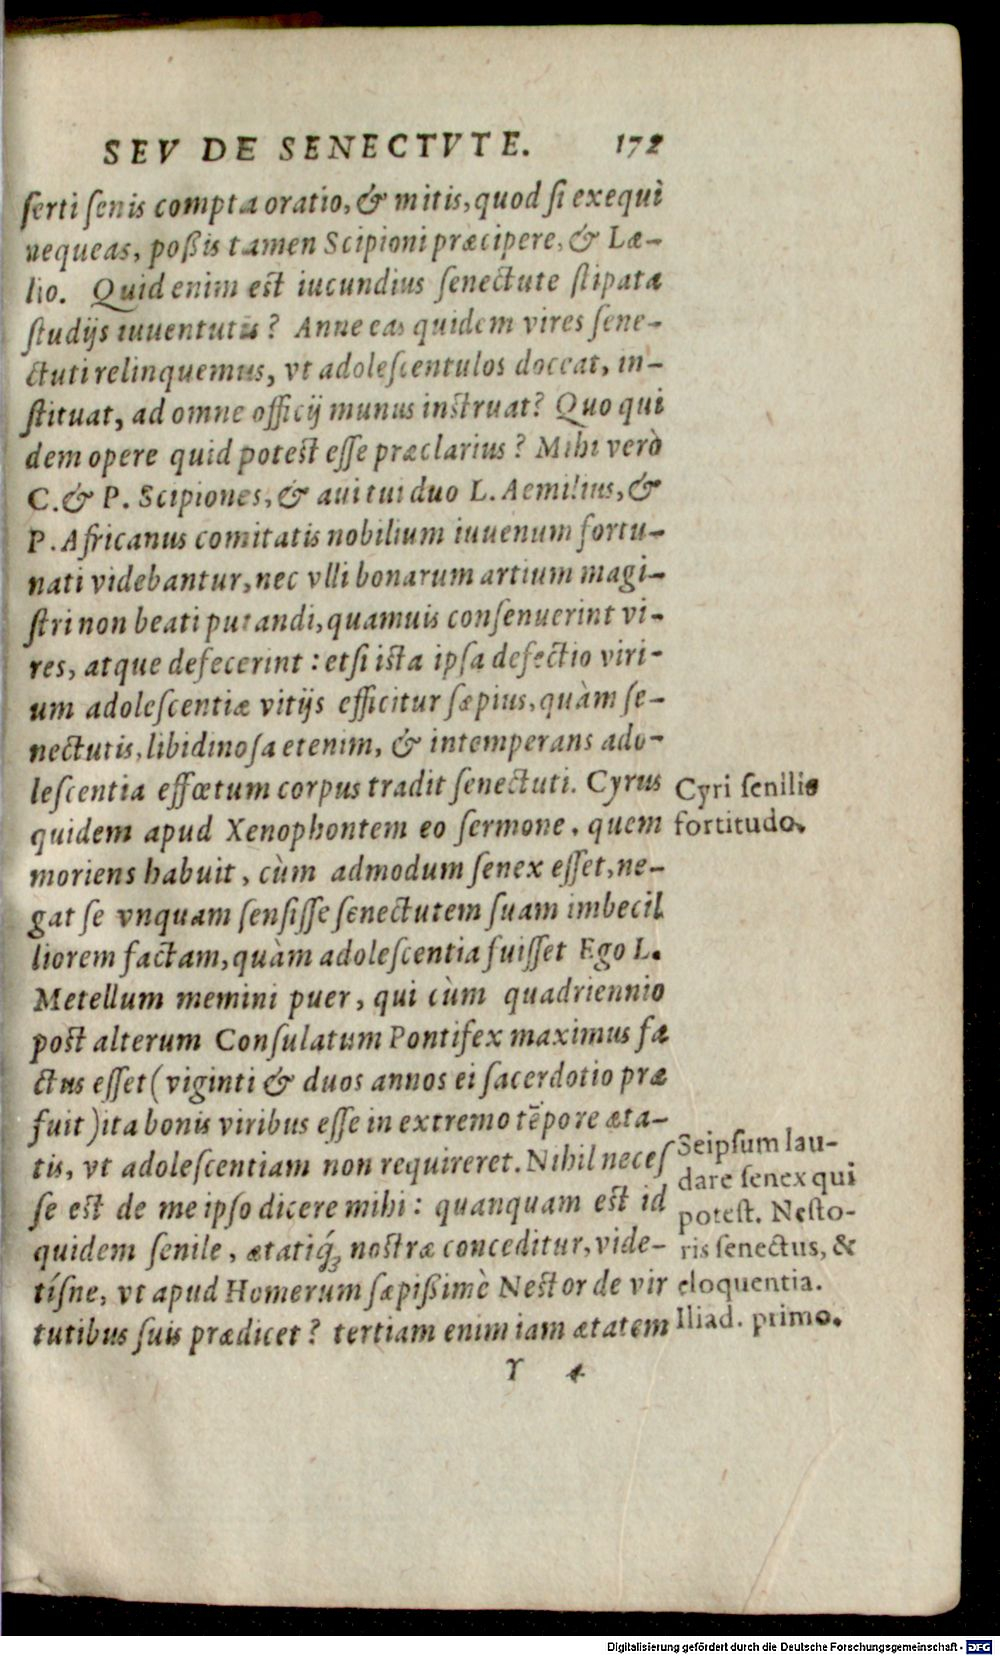 SEV DE SENECTVTE. 172
ſerti ſenis compta oratio, & mitis, quod ſi exequi
nequeas, poßis tamen Scipioni præcipere, & Læ-
lio. Quid enim est iucundius ſenectute ſtipata
ſtudijs iuuentutis? Anne eas quidem vires ſene-
ctuti relinquemus, vt adoleſcentulos doceat, in-
ſtituat, ad omne officij munus inſtruat? Quo qui
dem opere quid potest eſſe præclarius? Mihi verò
C. & P. Scipiones, & aui tui duo L. Aemilius, &
P. Africanus comitatis nobilium iuuenum fortu-
nati videbantur, nec vlli bonarum artium magi-
ſtri non beati putandi, quamuis conſenuerint vi-
res, atque defecerint: etſi iſta ipſa defectio viri-
um adoleſcentiæ vitijs efficitur ſæpius, quàm ſe-
nectutis, libidinoſa etenim, & intemperans ado-
leſcentia effœtum corpus tradit ſenectuti. Cyrus
quidem apud Xenophontem eo ſermone, quem
moriens habuit, cùm admodum ſenex eſſet, ne-
gat ſe vnquam ſenſiſſe ſenectutem ſuam imbecil
liorem factam, quàm adoleſcentia fuiſſet Ego L.
Metellum memini puer, qui cùm quadriennio
post alterum Conſulatum Pontifex maximus fa
ctus eſſet (viginti & duos annos ei ſacerdotio præ
fuit) ita bonis viribus eſſe in extremo tēpore æta-
tis, vt adoleſcentiam non requireret. Nihil neceſ
ſe est de me ipſo dicere mihi: quanquam est id
quidem ſenile, ætatiq́ꝫ nostræ conceditur, vide-
tíſne, vt apud Homerum ſæpißimè Nestor de vir
tutibus ſuis prædicet? tertiam enim iam ætatem
Y 4
Cyri ſenilis
fortitudo.
Seipſum lau-
dare ſenex qui
poteſt. Neſto-
ris ſenectus, &
eloquentia.
Iliad. primo.
Digitalisierung gefördert durch die Deutsche Forschungsgemeinschaft - DFG